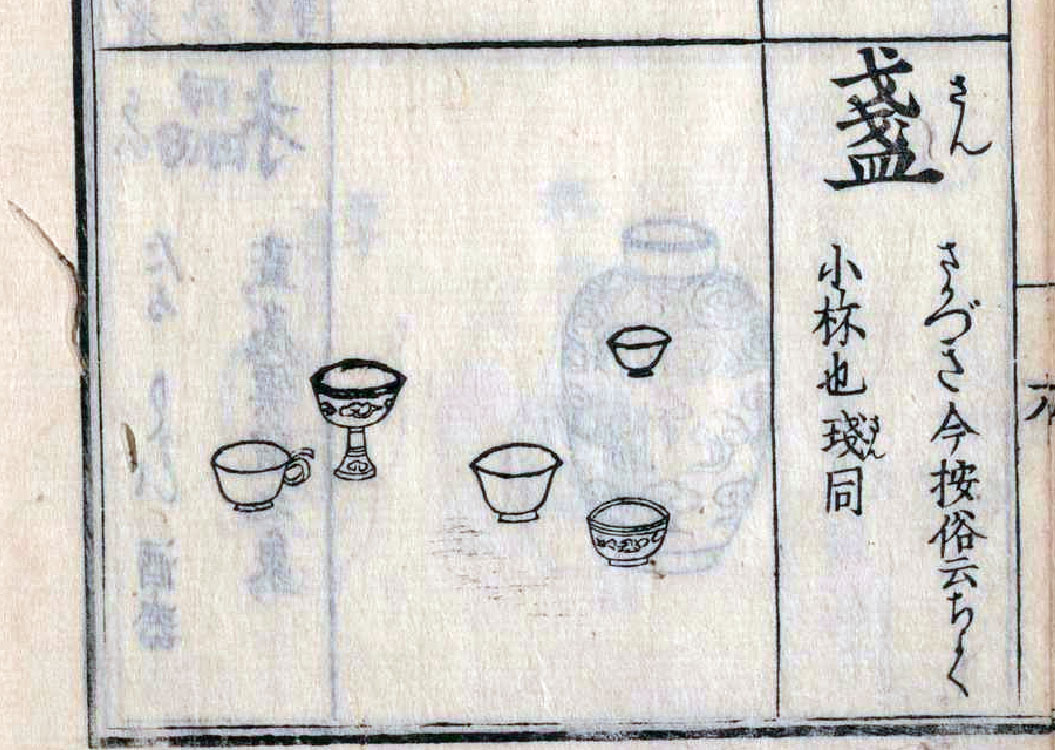 盞
さん
さかづき今按俗云ちよく
小杯也琖同
さん